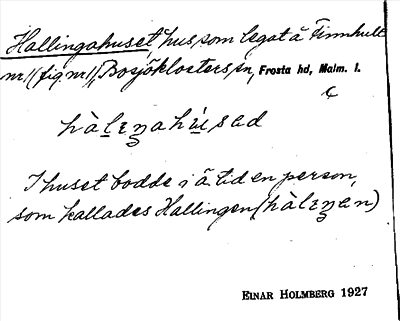 Hallingahuset, hus, som legat å Finnhult
nr 1 (fig nr 1), Bosjöklosters sn, Frosta hd, Malm. l.
hàlɪŋahúsad
I huset bodde i å tid en person,
som kallades Hallingen (hàlɪŋen)
EINAR HOLMBERG 1927